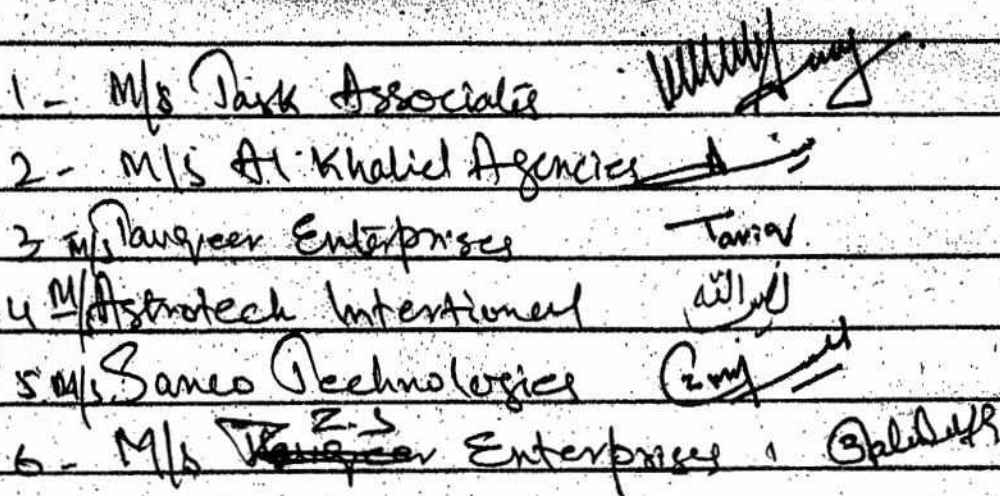 1 - M/s Task Associates
2 - M/s Al-Khalid Agencies
3 M/s Tauqeer Enterprises Tariq
4 M/s Astrotech Intertional
5. M/s Sanco Technologies
6 - M/s Z.S Enterprises